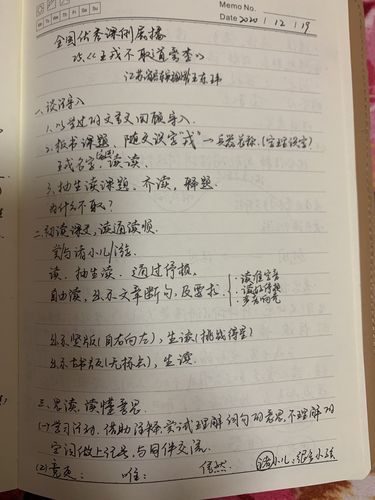 Memo No.
Mo Tu We Th Fr Sa Su
Date 2020 / 12 / 19
全国优秀课例展播
《王戎不取道旁李》
江苏 王东
一、谈话导入
1、以学过的文言文回顾导入.
2、板书课题, 随文识字"戎"—兵器名称.(字理识字)
王戎名字 读读.
3、抽生读课题, 齐读, 解题.
为什么不取?
二、初读课文, 读通读顺.
尝与诸小儿/游.
读, 抽生读. 通过停顿.
自由读, 出示文章断句, 及要求.
·读准字音
·读好停顿
·多音向亮
出示竖版(自右向左), 生读(挑战停空)
出示古书版(无标点), 生读.
三、思读, 读懂意思.
(一)学习活动. 借助注释, 尝试理解词句的意思, 不理解的
字词做上记号, 与同伴交流.
(2)竞走: 唯: 信然. 诸小儿:很多小孩